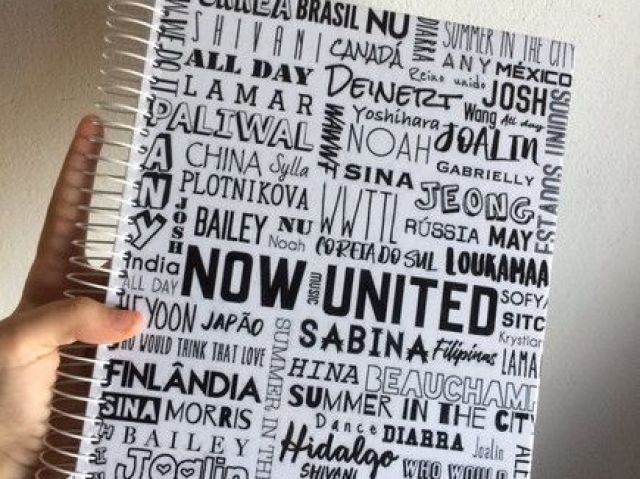 BRASIL NU
SHIVANI
CANADÁ
DIARRA
SUMMER IN THE CITY
ANY
MÉXICO
ALL DAY
DEINERT
Reino unido
JOSH
LAMAR
Yoshihara
Wang
All day
PALIWAL
WWWT
NOAH
JOALIN
CHINA
Sylla
SINA
GABRIELLY
ANY
JOSH
PLOTNIKOVA
WWTTL
JEONG
BAILEY
NU
Noah
RÚSSIA
MAY
COREIA DO SUL
LOUKAMAA
India
ALL DAY
NOW UNITED
music
SOFYA
HEYOON
JAPÃO
SABINA
Filipinas
SITC
Krystian
WHO WOULD THINK THAT LOVE
SUMMER IN THE
LAMA
FINLÂNDIA
HINA
BEAUCHAMP
SINA
MORRIS
SUMMER IN THE CITY
BAILEY
Dance
DIARRA
Joalin
Joalin
Hidalgo
SHIVANI
WHO WOULD